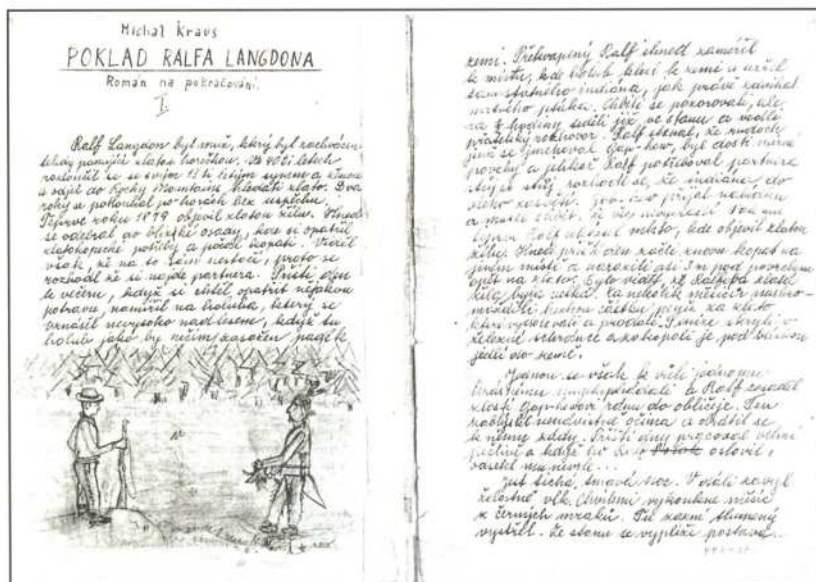 Michal Kraus
POKLAD RALFA LANGDONA
Román na pokračování.
I.
Ralf Langdon byl muž, který byl zachvácen
tehdy panující zlatou horečkou. Ve 40ti letech
rozloučil se se svým 13 ti letým synem a ženou
a odjel do Rocky Mountains, hledati zlato. Dva
roky se potloukal po horách bez úspěchu.
Teprve roku 1879 objevil zlatou žílu. Ihned
se odebral do blízké osady, kde si opatřil
zlatokopecké potřeby a počal kopati. Viděl
však, že na to sám nestačí, proto se
rozhodl že si najde partnera. Příští den
k večeru, když si chtěl opatřit nějakou
potravu, namířil na holuba, který se
vznášel nevysoko nad lesem, když tu
holub jako by něčím zasažen padá k
zemi. Překvapený Ralf ihned zamířil
k místu, kde holub letěl k zemi a uzřel
statného indiána, jak právě zdvihal
ptáka. Chtěli se pozorovati, ale
za hodiny seděli již ve stanu a vedli
přátelský rozhovor. Ralf shledal, že rudoch
jenž se jmenoval Gap-how, byl dosti
a jelikož Ralf potřeboval partnera
rozhodl se, že indiána do
všeho zasvětí. přijal nabídku
a musel slíbit, že nic neprozradí. Ten mu
Ralf ukázal místo, kde objevil zlatou
žílu. Hned příští den začli znovu kopat na
jiném místě a narazili asi 1 m pod povrchem
opět na zlato. Bylo vidět, že Ralfova zlatá
žíla byla velká. Za několik měsíců nashro-
máždili částku peněz za zlato
které vytěžovali a prodali. Peníze skryli v
železné schránce a zakopali je pod
jedlí do země.
Jednou se však k vůli jednomu
nepohodli a Ralf zasadil
zlostí Gap-howovi ránu do obličeje. Ten
zablýskl nenávistně očima a obrátil se
k němu zády. Příští dny pracoval velmi
pečlivě a když ho Ralf oslovil,
nevrle...
Jest tichá, tmavá noc. V dáli zavyl
žalostně vlk. Chvílemi vykoukne měsíc
z černých mraků. Tu zazní tlumený
výstřel. Ze stanu se vyplíží postava...